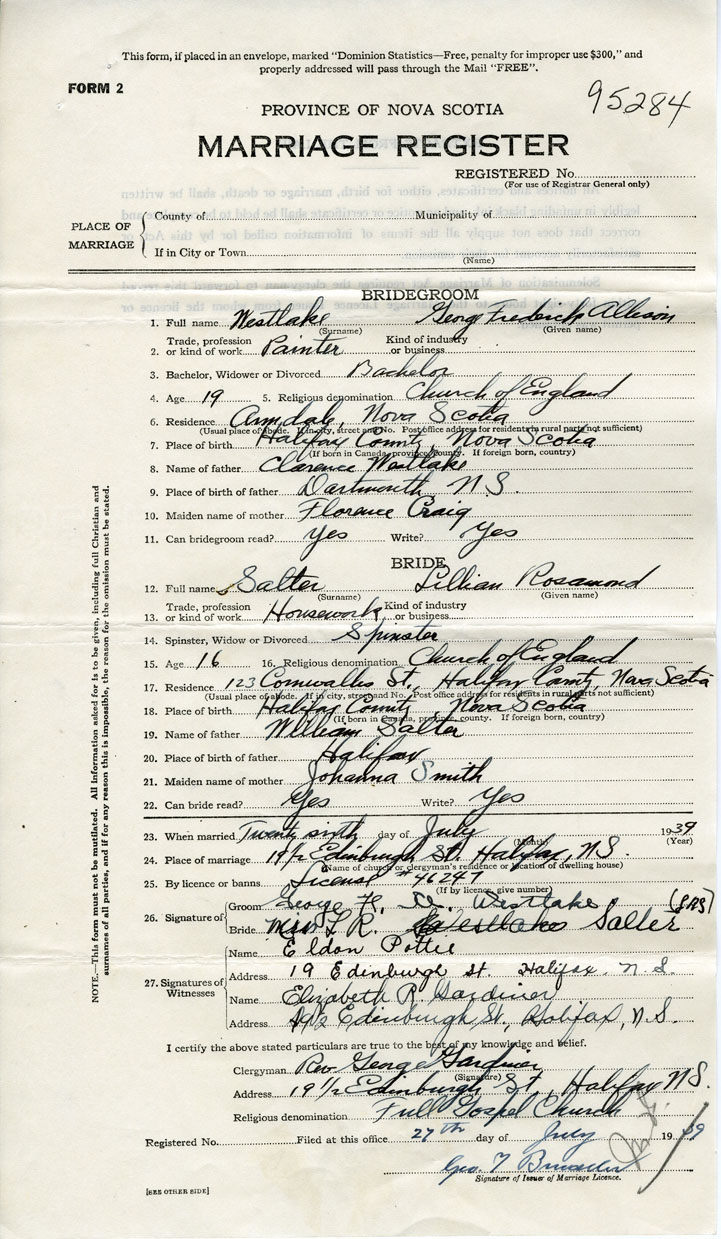 This form, if placed in an envelope, marked "Dominion Statistics—Free, penalty for improper use $300," and
properly addressed will pass through the Mail "FREE".
FORM 2
95284
PROVINCE OF NOVA SCOTIA
MARRIAGE REGISTER
REGISTERED No.
(For use of Registrar General only)
PLACE OF MARRIAGE
County of Municipality of
If in City or Town
(Name)
BRIDEGROOM
1. Full name Westlake George Frederick Allison
(Surname) (Given name)
Trade, profession Kind of industry
2. or kind of work Painter or business
3. Bachelor, Widower or Divorced Bachelor
4. Age 19 5. Religious denomination Church of England
6. Residence Armdale, Nova Scotia
(Usual place of abode. If in city, street and No. Post office address for residents in rural parts not sufficient)
7. Place of birth Halifax County, Nova Scotia
(If born in Canada, province, county. If foreign born, country)
8. Name of father Clarence Westlake
9. Place of birth of father Dartmouth N.S.
10. Maiden name of mother Florence Craig
11. Can bridegroom read? Yes Write? Yes
BRIDE
12. Full name Salter Lillian Rosamond
(Surname) (Given name)
Trade, profession Kind of industry
13. or kind of work Housework or business
14. Spinster, Widow or Divorced Spinster
15. Age 16 16. Religious denomination Church of England
17. Residence 123 Cornwallis St., Halifax County, Nova Scotia
(Usual place of abode. If in city, street and No. Post office address for residents in rural parts not sufficient)
18. Place of birth Halifax County, Nova Scotia
(If born in Canada, province, county. If foreign born, country)
19. Name of father William Salter
20. Place of birth of father Halifax
21. Maiden name of mother Johanna Smith
22. Can bride read? Yes Write? Yes
23. When married Twenty sixth day of July 1939
(Month) (Year)
24. Place of marriage 19 1/2 Edinburgh St. Halifax, N.S.
(Name of church or clergyman's residence or location of dwelling house)
25. By licence or banns License # 46247
(If by licence, give number)
26. Signature of
Groom George F. A. Westlake
Bride Miss L R. Westlake Salter
27. Signatures of Witnesses
Name Eldon Pottie
Address 19 Edinburgh St. Halifax. N.S.
Name Elizabeth R. Gardiner
Address 19 1/2 Edinburgh St., Halifax, N.S.
I certify the above stated particulars are true to the best of my knowledge and belief.
Clergyman Rev. George Gardiner
(Signature)
Address 19 1/2 Edinburgh St, Halifax N.S.
Religious denomination Full Gospel Church
Registered No. Filed at this office 27th day of July 1939
Geo. T
Signature of Issuer of Marriage Licence.
[SEE OTHER SIDE]
NOTE.—This form must not be mutilated. All Information asked for is to be given, including full Christian and
surnames of all parties, and if for any reason this is impossible, the reason for the omission must be stated.